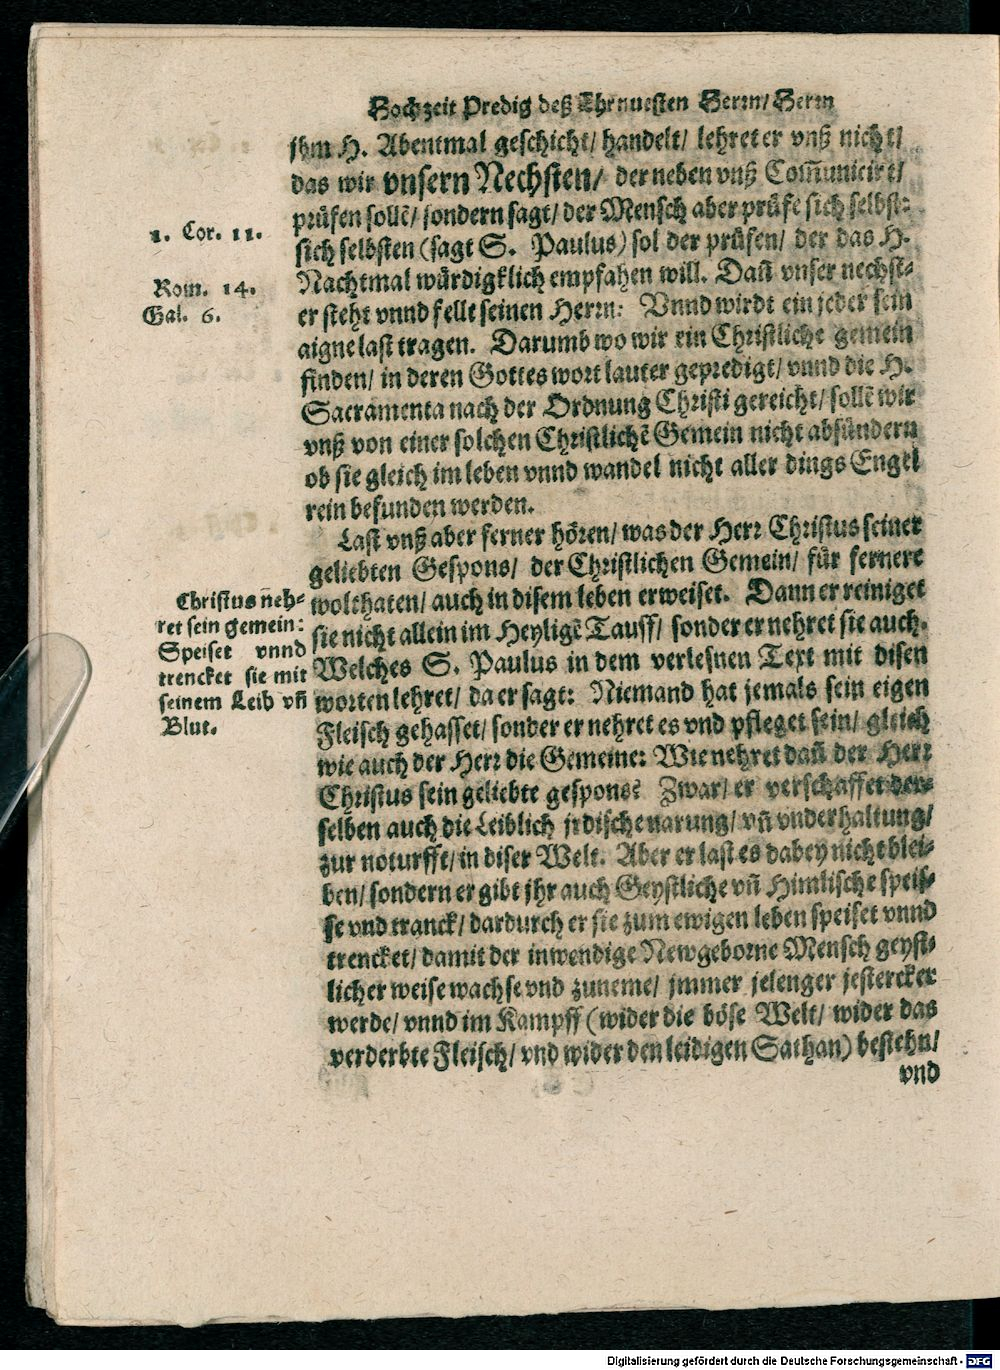 Hochzeit Predig deß Ehrnuesten Herrn/ Herrn
jhm H. Abentmal geschicht/ handelt/ lehret er vnß nicht/
das wir vnsern Nechsten/ der neben vnß Com̃unicirt/
prüfen sollẽ/ sondern sagt/ der Mensch aber prüfe sich selbst:
1. Cor. 11.
sich selbsten (sagt S. Paulus) sol der prüfen/ der das H.
Nachtmal würdigklich empfahen will. Dañ vnser nechst-
Rom. 14.
Gal. 6.
er steht vnnd fellt seinen Herrn: Vnnd wirdt ein jeder sein
aigne last tragen. Darumb wo wir ein Christliche gemein
finden/ in deren Gottes wort lauter gepredigt/ vnnd die H.
Sacramenta nach der Ordnung Christi gereicht/ sollẽ wir
vnß von einer solchen Christlichẽ Gemein nicht absündern
ob sie gleich im leben vnnd wandel nicht aller dings Engel
rein befunden werden.
Last vnß aber ferner hören/ was der Herr Christus seiner
geliebten Gespons/ der Christlichen Gemein/ für fernere
wolthaten/ auch in disem leben erweiset. Dann er reiniget
sie nicht allein im Heyligẽ Tauff/ sonder er nehret sie auch.
Christus neh-
ret sein gemein:
Speiset vnnd
trencket sie mit
seinem Leib vñ
Blut.
Welches S. Paulus in dem verlesnen Text mit disen
worten lehret/ da er sagt: Niemand hat jemals sein eigen
Fleisch gehasset/ sonder er nehret es vnd pfleget sein/ gleich
wie auch der Herr die Gemeine: Wie nehret dañ der Herr
Christus sein geliebte gespons? Zwar/ er verschaffet der-
selben auch die Leiblich jrdische narung/ vñ vnderhaltung/
zur noturfft/ in diser Welt. Aber er last es dabey nicht blei-
ben/ sondern er gibt jhr auch Geystliche vñ Himlische speis-
se vnd tranck/ dardurch er sie zum ewigen leben speiset vnnd
trencket/ damit der inwendige Newgeborne Mensch geyst-
licher weise wachse vnd zuneme/ jmmer jelenger jestercker
werde/ vnnd im Kampff (wider die böse Welt/ wider das
verderbte Fleisch/ vnd wider den leidigen Sathan) bestehn/
vnd
Digitalisierung gefördert durch die Deutsche Forschungsgemeinschaft - DFG